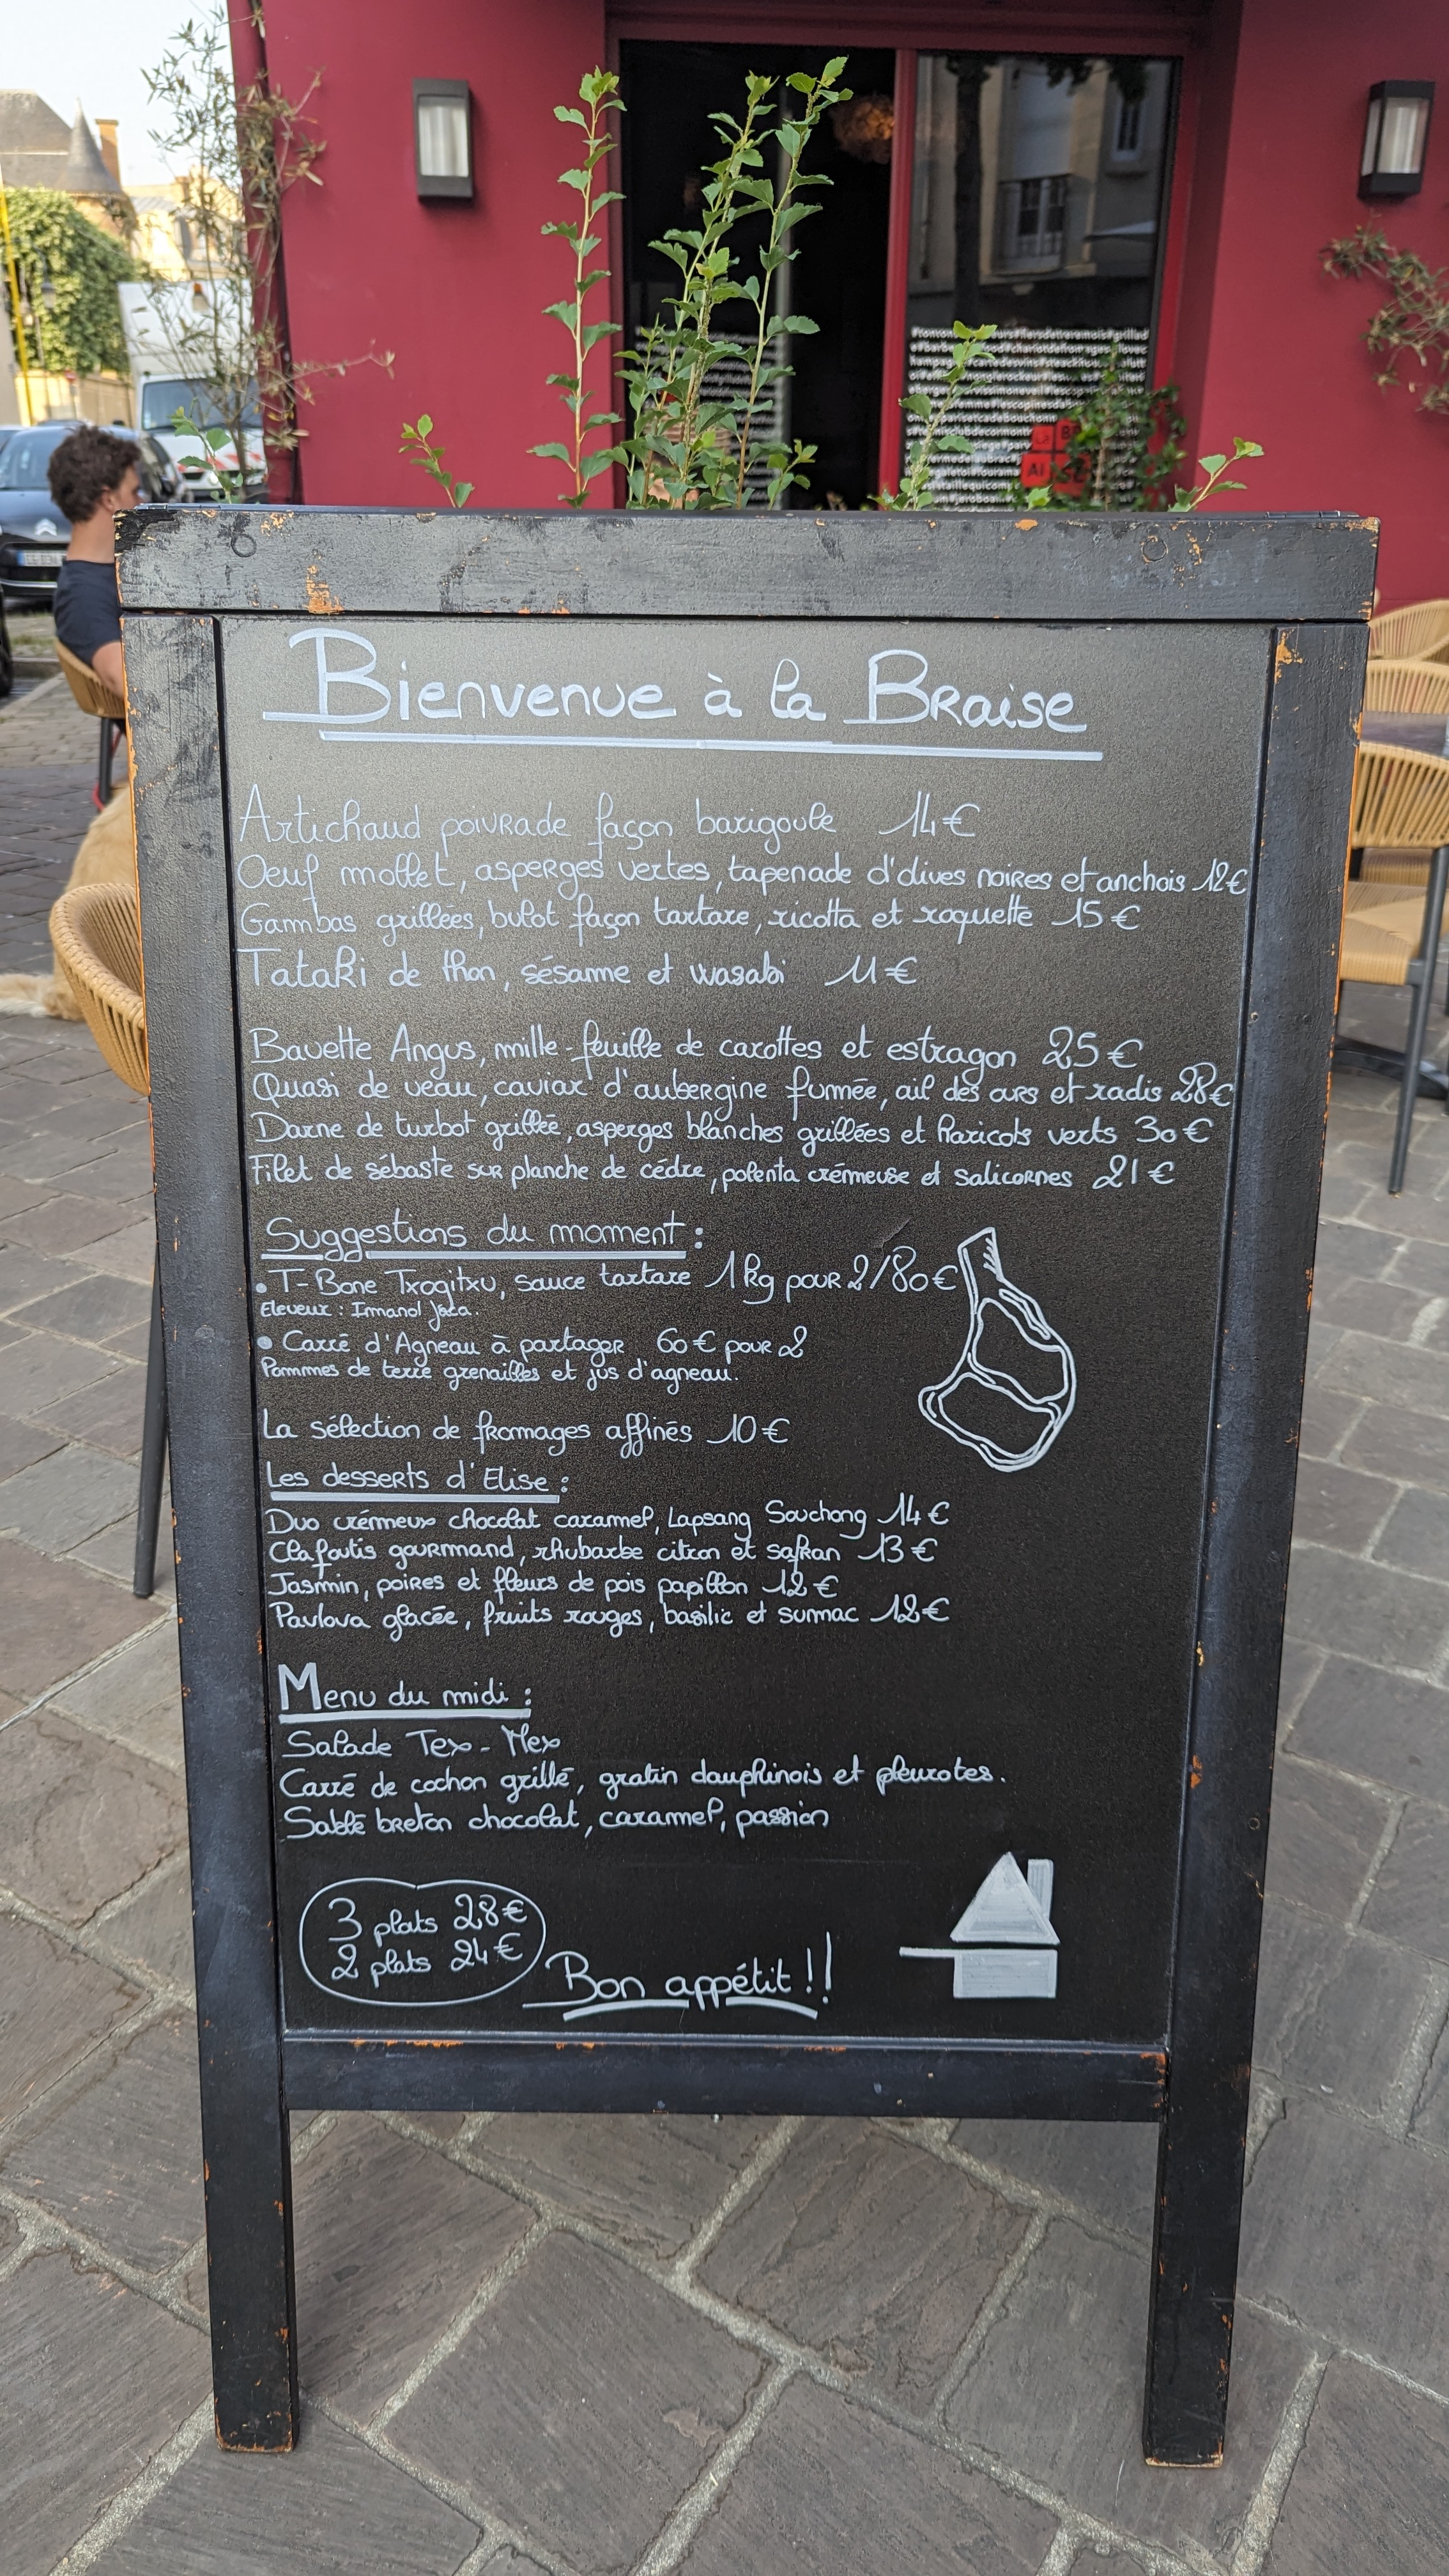 Bienvenue à la Braise
Artichaud poivrade façon barigoule 14€
Oeuf mollet, asperges vertes, tapenade d'olives noires et anchois 12€
Gambas grillées, bulot façon tartare, ricotta et roquette 15€
Tataki de thon, sésame et wasabi 11€
Bavette Angus, mille-feuille de carottes et estragon 25€
Quasi de veau, caviar d'aubergine fumée, ail des ours et radis 28€
Darne de turbot grillée, asperges blanches grillées et haricots verts 30€
Filet de sébaste sur planche de cédre, polenta crémeuse et salicornes 21€
Suggestions du moment :
• T-Bone Txogitxu, sauce tartare 1kg pour 2/80€
Eleveur : Imanol Jaca.
• Carré d'Agneau à partager 60€ pour 2
Pommes de terre grenailles et jus d'agneau.
La sélection de fromages affinés 10€
Les desserts d'Elise :
Duo crémeux chocolat caramel, Lapsang Souchong 14€
Clafoutis gourmand, rhubarbe citron et safran 13€
Jasmin, poires et fleurs de pois papillon 12€
Pavlova glacée, fruits rouges, basilic et sumac 12€
Menu du midi :
Salade Tex-Mex
Carré de cochon grillé, gratin dauphinois et pleurotes.
Sablé breton chocolat, caramel, passion
3 plats 28€
2 plats 24€
Bon appétit !!